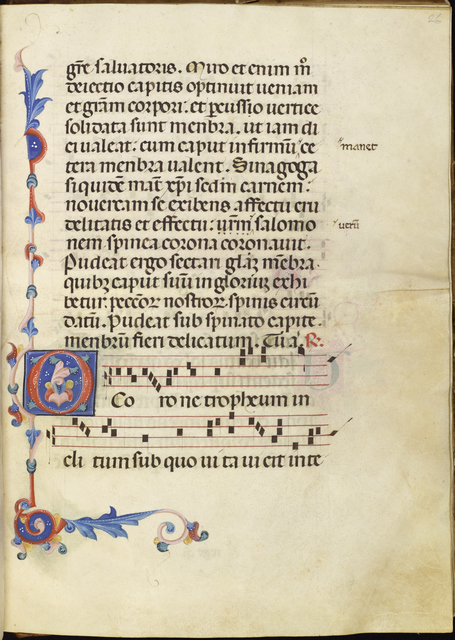 26
gr̄e saluatoris. Miro et enim m̄
deiectio capitis optinuit ueniam
et gr̄am corpori. et ꝑcussio uertice
solidata sunt menbra. ut iam di
ci ualeat. cum caput infirmū ce
tera menbra ualent. Sinagoga
manet
siquidē mat̄ xp̄i sed in carnem.
nouercam se exibens affectu cru
delitatis et effectu. salomo
uerū
nem spinea corona coronauit.
Pudeat ergo sectari gl̄iā mēbra.
quibꝫ caput suū ingloriuꝫ exhi
betur. peccōꝝ nostroꝝ spinis circū
datū. Pudeat sub spinato capite.
menbrum fieri delicatum. Tu a. R.
Co ro ne tropheum in
cli tum sub quo ui ta ui cit in te